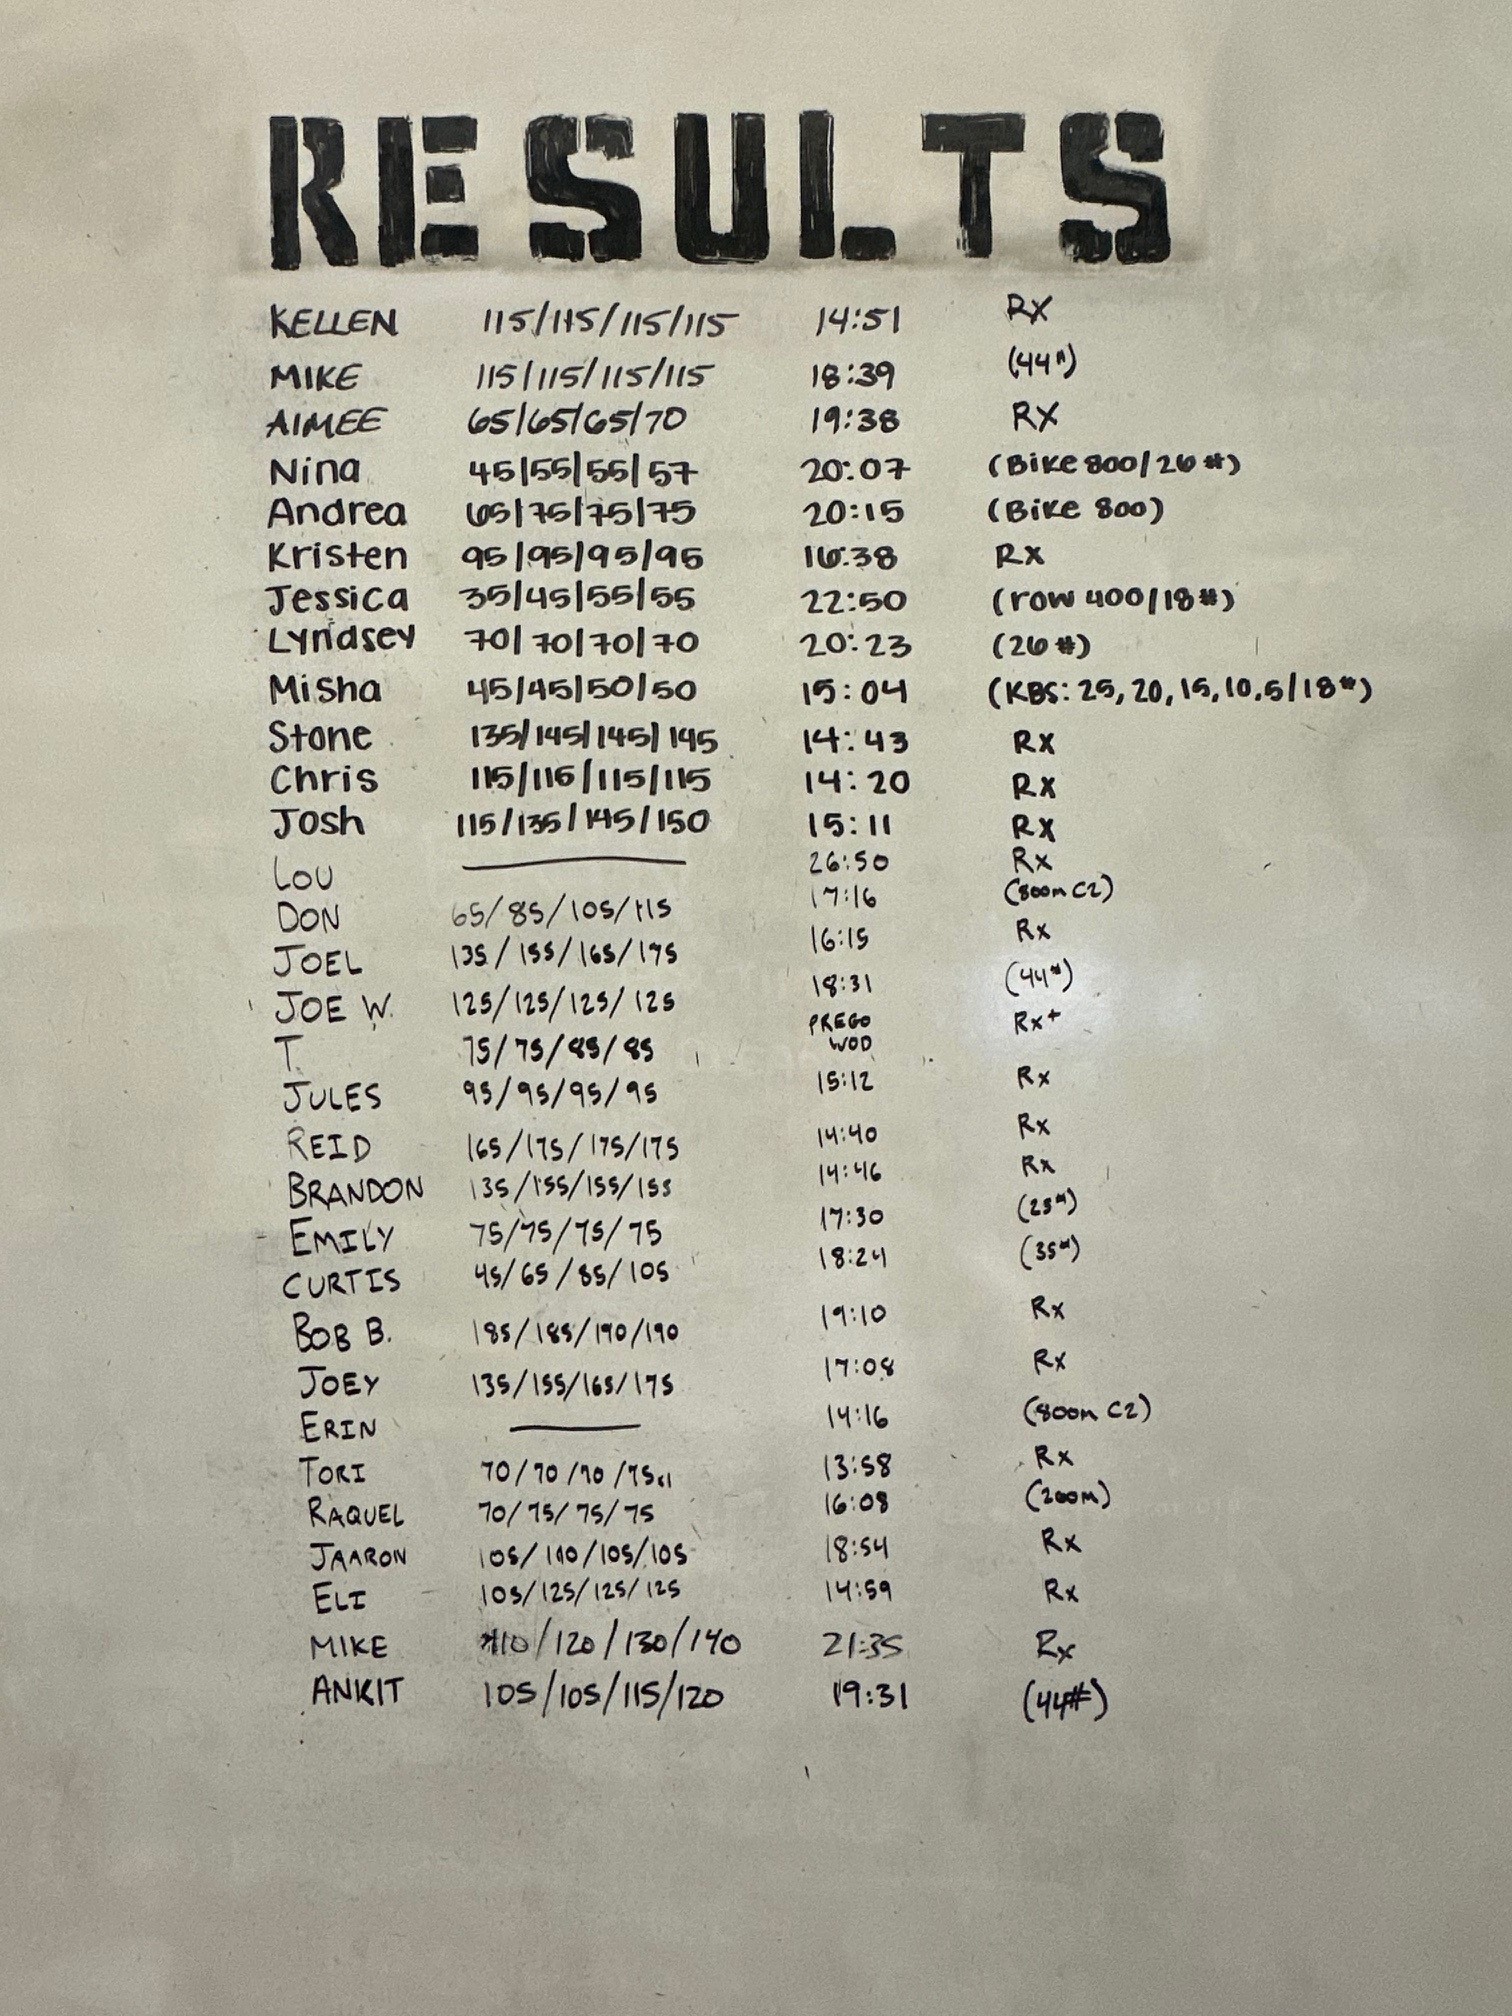 RESULTS
KELLEN 115/115/115/115 14:51 RX
MIKE 115/115/115/115 18:39 (44#)
AIMEE 65/65/65/70 19:38 RX
Nina 45/55/55/57 20:07 (Bike 800/26#)
Andrea 65/75/75/75 20:15 (Bike 800)
Kristen 95/95/95/95 16:38 Rx
Jessica 35/45/55/55 22:50 (row 400/18#)
Lyndsey 70/70/70/70 20:23 (26#)
Misha 45/45/50/50 15:04 (KBS: 25, 20, 15, 10, 5/18#)
Stone 135/145/145/145 14:43 Rx
Chris 115/115/115/115 14:20 Rx
Josh 115/135/145/150 15:11 Rx
LOU — 26:50 Rx
DON 65/85/105/115 17:16 (800m C2)
JOEL 135/155/165/175 16:15 Rx
JOE W. 125/125/125/125 18:31 (44#)
T. 75/75/85/85 PREGO WOD Rx+
JULES 95/95/95/95 15:12 Rx
REID 165/175/175/175 14:40 Rx
BRANDON 135/155/155/155 14:46 Rx
EMILY 75/75/75/75 17:30 (25#)
CURTIS 45/65/85/105 18:24 (35#)
BOB B. 185/185/190/190 19:10 Rx
JOEY 135/155/165/175 17:08 Rx
ERIN — 14:16 (800m C2)
TORI 70/70/70/75 13:58 Rx
RAQUEL 70/75/75/75 16:08 (200m)
JAARON 105/110/105/105 18:54 Rx
ELI 105/125/125/125 14:59 Rx
MIKE 110/120/130/140 21:35 Rx
ANKIT 105/105/115/120 19:31 (44#)